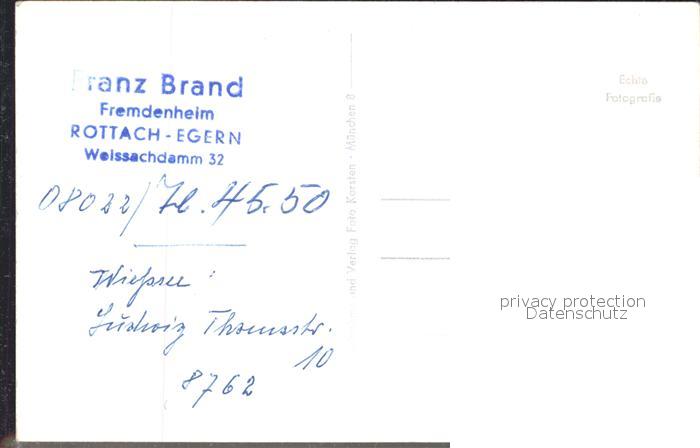 Franz Brand
Fremdenheim
ROTTACH-EGERN
Weissachdamm 32
08022/ 45.50
Wießsee:
Ludwig Thomastr.
10
8762
und Verlag Foto Kersten - München 8
Echte
Fotografie
privacy protection
Datenschutz